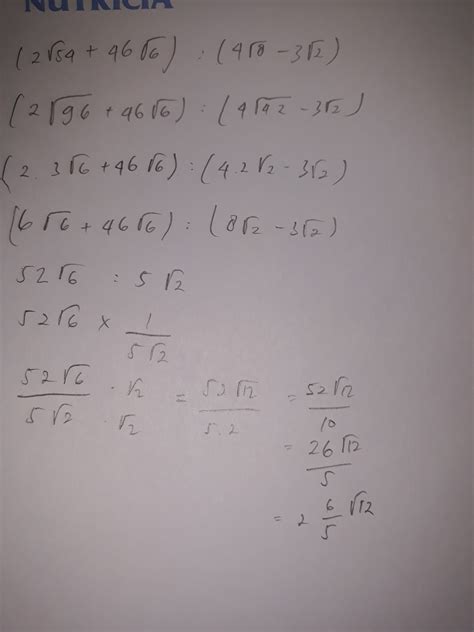 NUTRICIA
(2√54 + 46√6) : (4√8 - 3√2)
(2√96 + 46√6) : (4√42 - 3√2)
(2. 3√6 + 46√6) : (4.2√2 - 3√2)
(6√6 + 46√6) : (8√2 - 3√2)
52√6 : 5√2
52√6 × 1/5√2
52√6/5√2 . √2/√2 = 52√12/5.2 = 52√12/10
= 26√12/5
= 2 6/5 √12